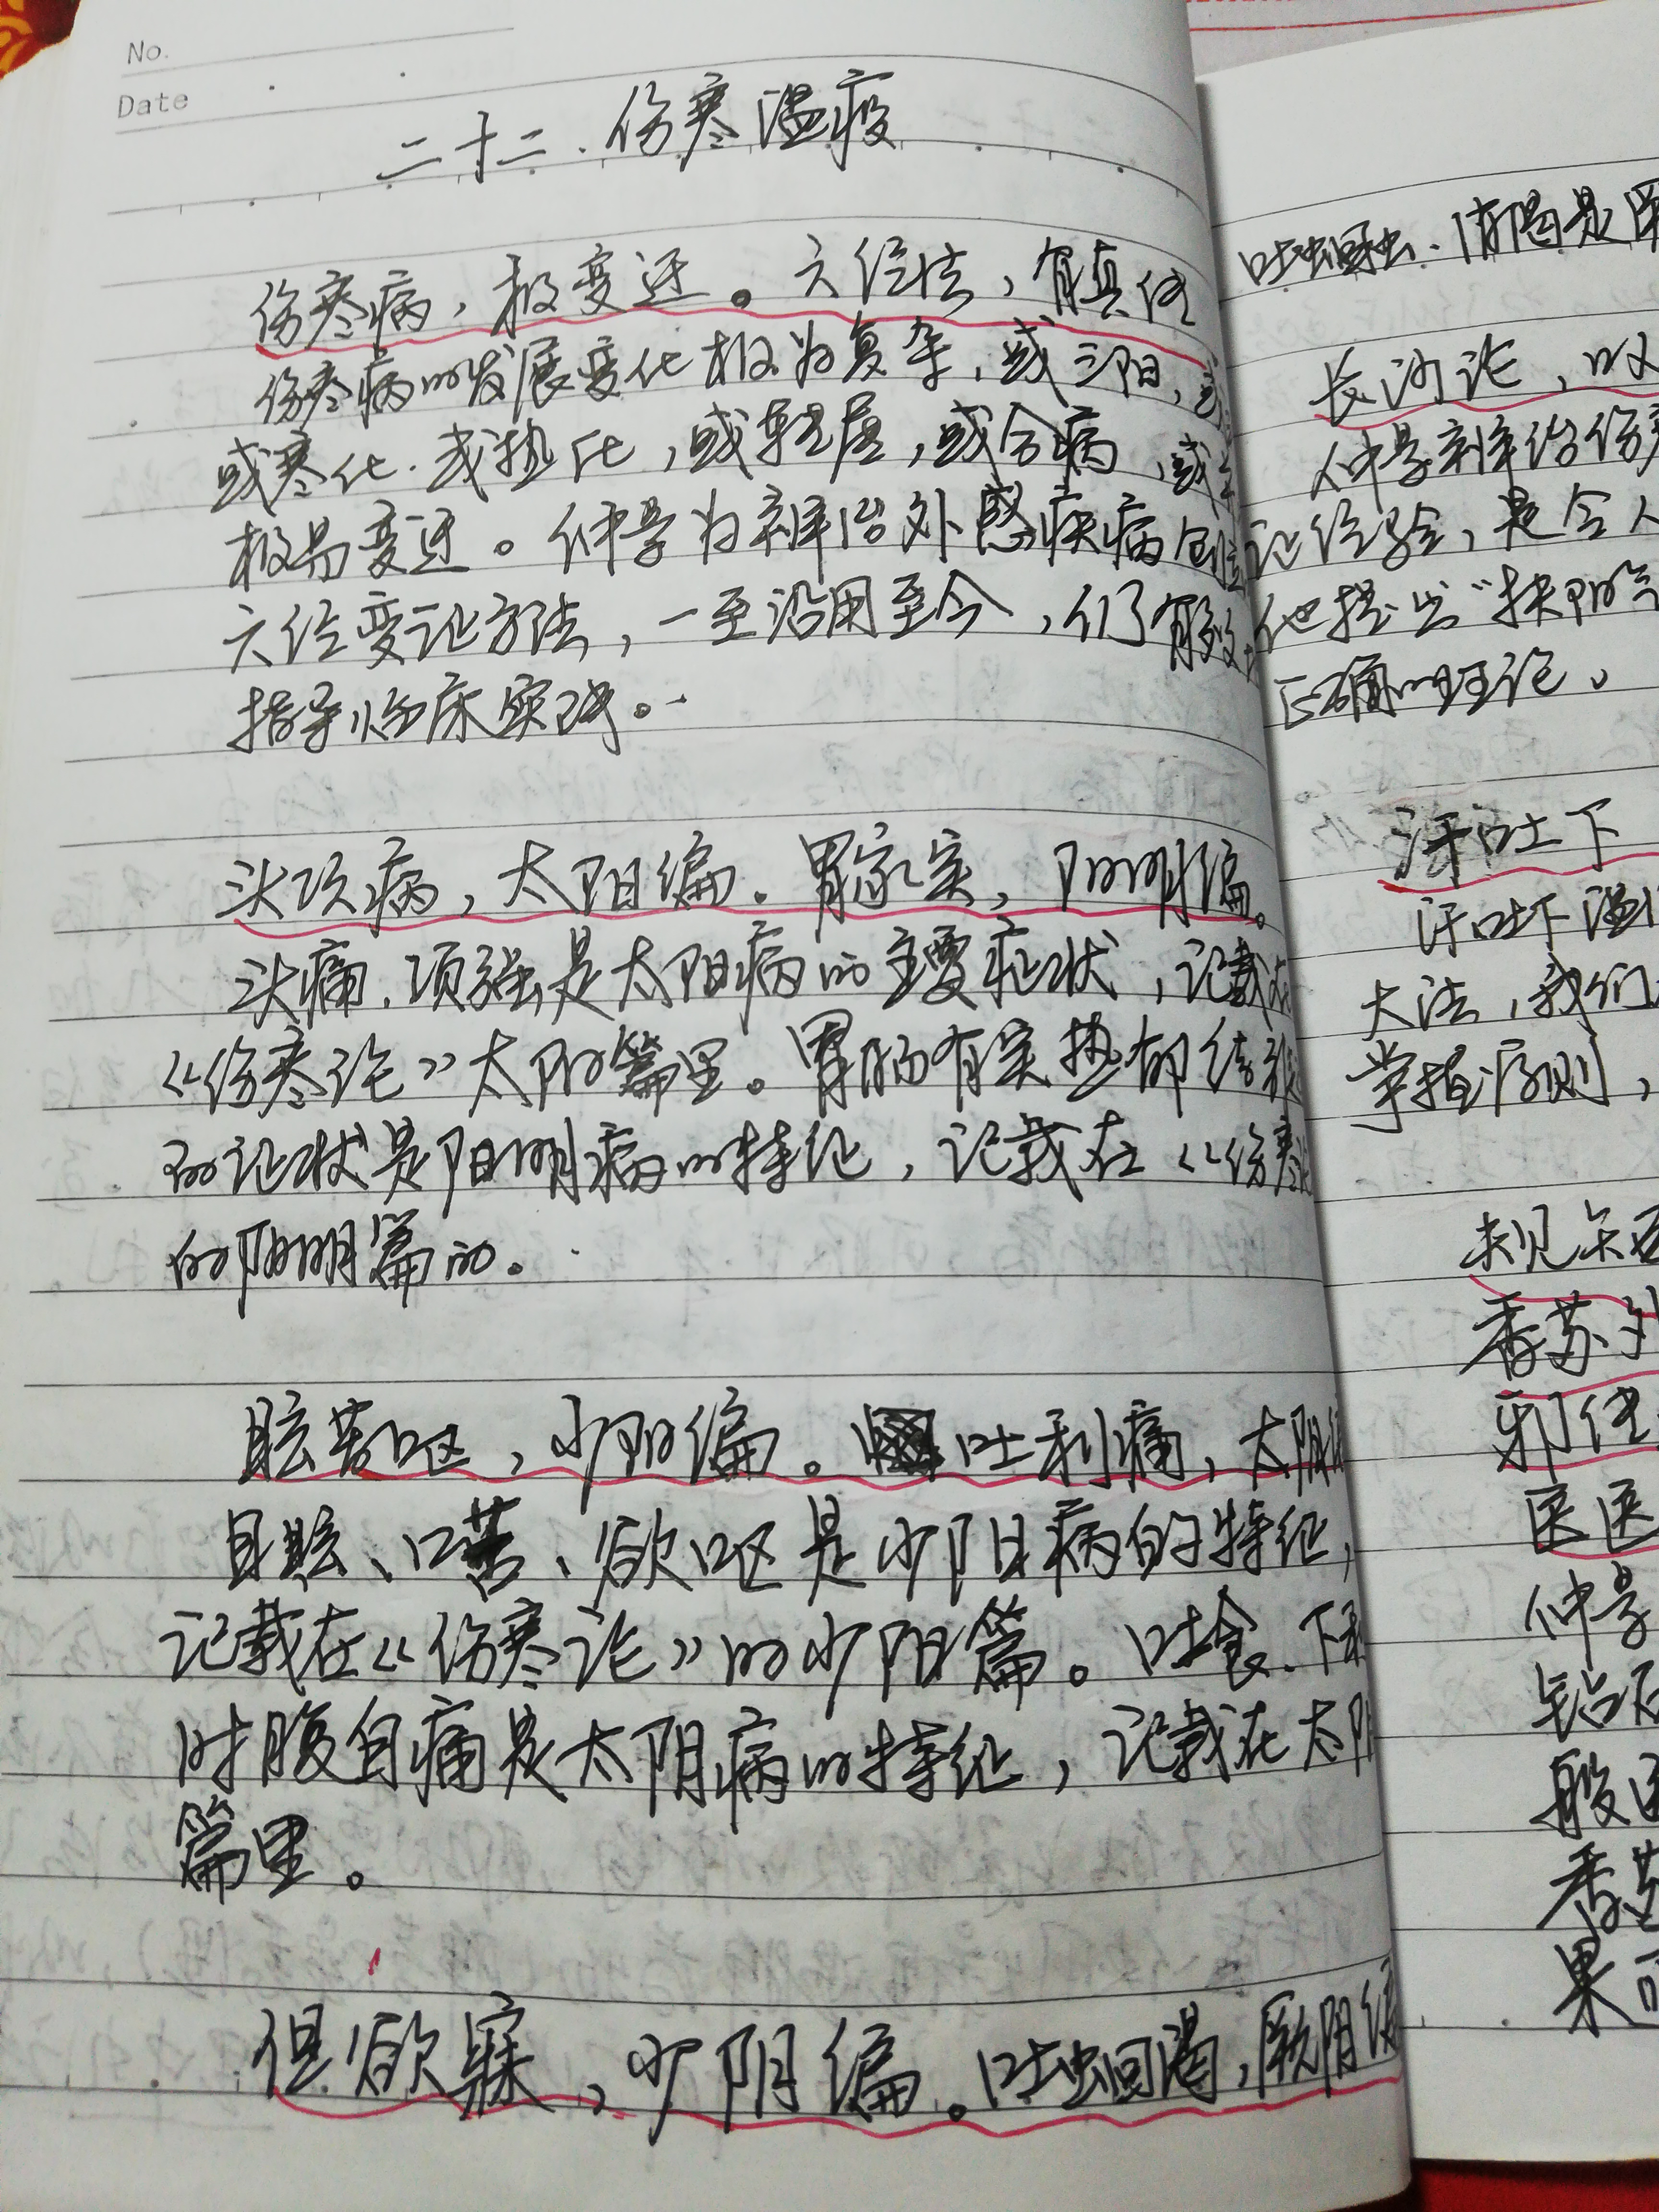 No.
Date
二十二.伤寒温疫
伤寒病，极变迁。六经法，有真传
伤寒病的发展变化极为复杂，或三阳，
或寒化.或热化，或转属，或合病，或
极易变迁。仲景为辨治外感疾病创
六经变证方法，一至沿用至今，仍了有效
指导临床实践。
头项病，太阳偏.胃家实，阳明偏。
头痛.项强是太阳病的主要症状，记载在
《伤寒论》太阳篇里。胃肠有实热郁结
的证状是阳明病的特征，记载在《伤寒
的阳明篇的。
眩苦呕，少阳偏。吐利痛，太阴
目眩、口苦、欲呕是少阳病的特征，
记载在《伤寒论》的少阳篇。吐食.下利
时腹自痛是太阴病的特征，记载在太阴
篇里。
但欲寐，少阴偏。吐蛔渴，厥阴偏
吐蛔虫.消渴是厥
长沙论，叹
仲景辨治伤寒
证经验，是令人
他提出“扶阳气
正确的理论。
汗吐下
汗吐下温
大法，我们
掌握原则，
未见
香苏
邪
医医
仲景
钻石
般
香苏
果可